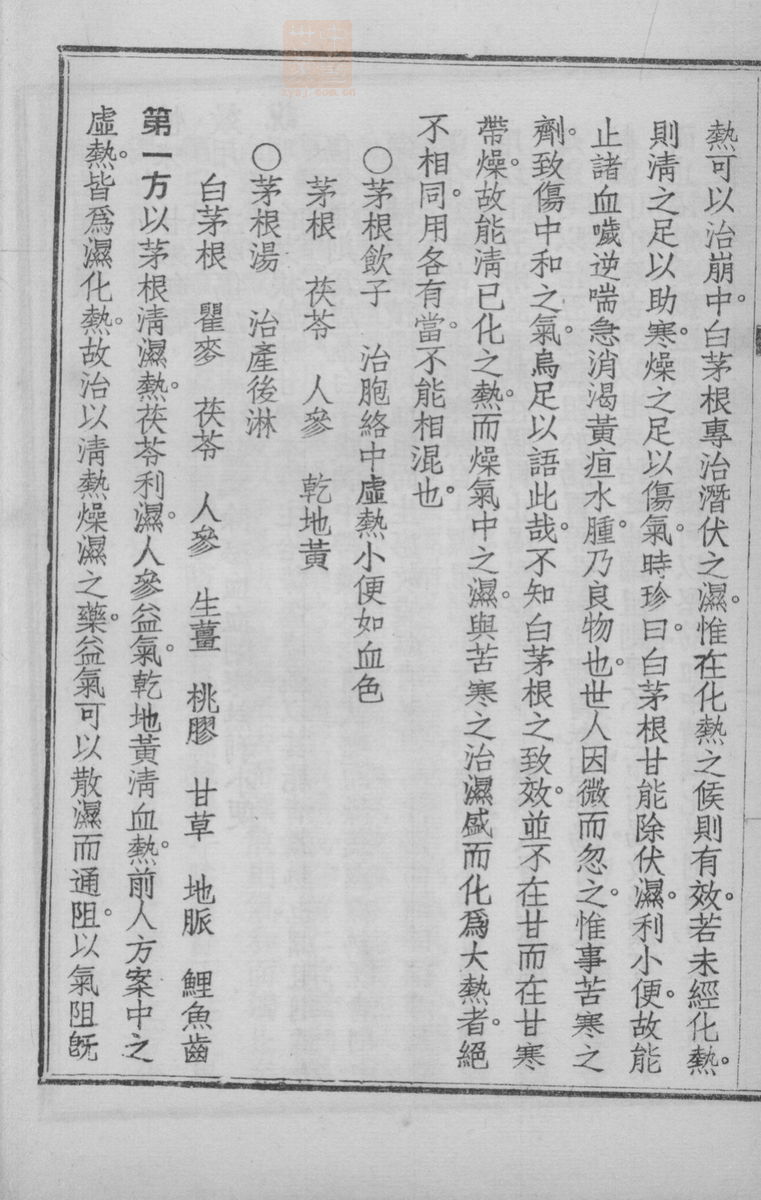 熱可以治崩中。白茅根專治潛伏之濕。惟在化熱之候則有效。若未經化熱。
則淸之足以助寒。燥之足以傷氣。時珍曰。白茅根甘能除伏濕。利小便。故能
止諸血噦逆喘急消渴黃疸水腫。乃良物也。世人因微而忽之。惟事苦寒之
劑。致傷中和之氣。烏足以語此哉。不知白茅根之致效。並不在甘而在甘寒
帶燥。故能淸已化之熱。而燥氣中之濕。與苦寒之治濕盛而化爲大熱者。絕
不相同。用各有當。不能相混也。
〇茅根飮子　治胞絡中虛熱小便如血色
茅根　茯苓　人參　乾地黃
〇茅根湯　治產後淋
白茅根　瞿麥　茯苓　人參　生薑　桃膠　甘草　地脈　鯉魚齒
第一方以茅根淸濕熱。茯苓利濕。人參益氣。乾地黃淸血熱。前人方案中之
虛熱。皆爲濕化熱。故治以淸熱燥濕之藥。益氣可以散濕而通阻。以氣阻旣
zysj.com.cn